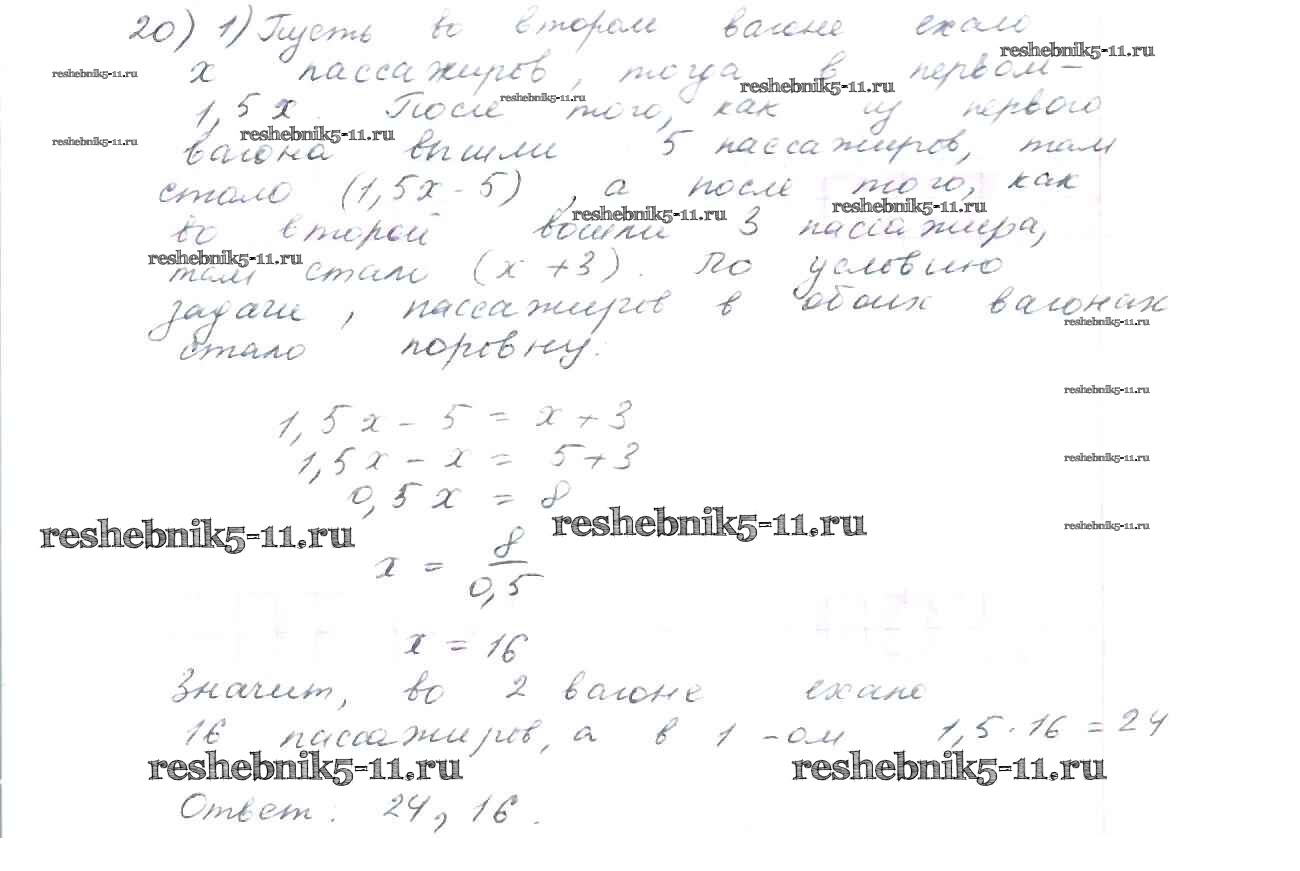 20) 1) Пусть во втором вагоне ехало
reshebnik5-11.ru
reshebnik5-11.ru
х пассажиров, тогда в первом –
reshebnik5-11.ru
reshebnik5-11.ru
1,5 х. После того, как из первого
reshebnik5-11.ru
reshebnik5-11.ru
вагона вышли 5 пассажиров, там
стало (1,5х - 5), а после того, как
reshebnik5-11.ru
reshebnik5-11.ru
во второй вошли 3 пассажира,
reshebnik5-11.ru
там стало (х + 3). По условию
задачи, пассажиров в обоих вагонах
reshebnik5-11.ru
стало поровну.
reshebnik5-11.ru
1,5х - 5 = х + 3
1,5х - х = 5 + 3
reshebnik5-11.ru
0,5х = 8
reshebnik5-11.ru
reshebnik5-11.ru
reshebnik5-11.ru
х = 8/0,5
х = 16
Значит, во 2 вагоне ехало
16 пассажиров, а в 1-ом 1,5 · 16 = 24
reshebnik5-11.ru
reshebnik5-11.ru
Ответ: 24, 16.